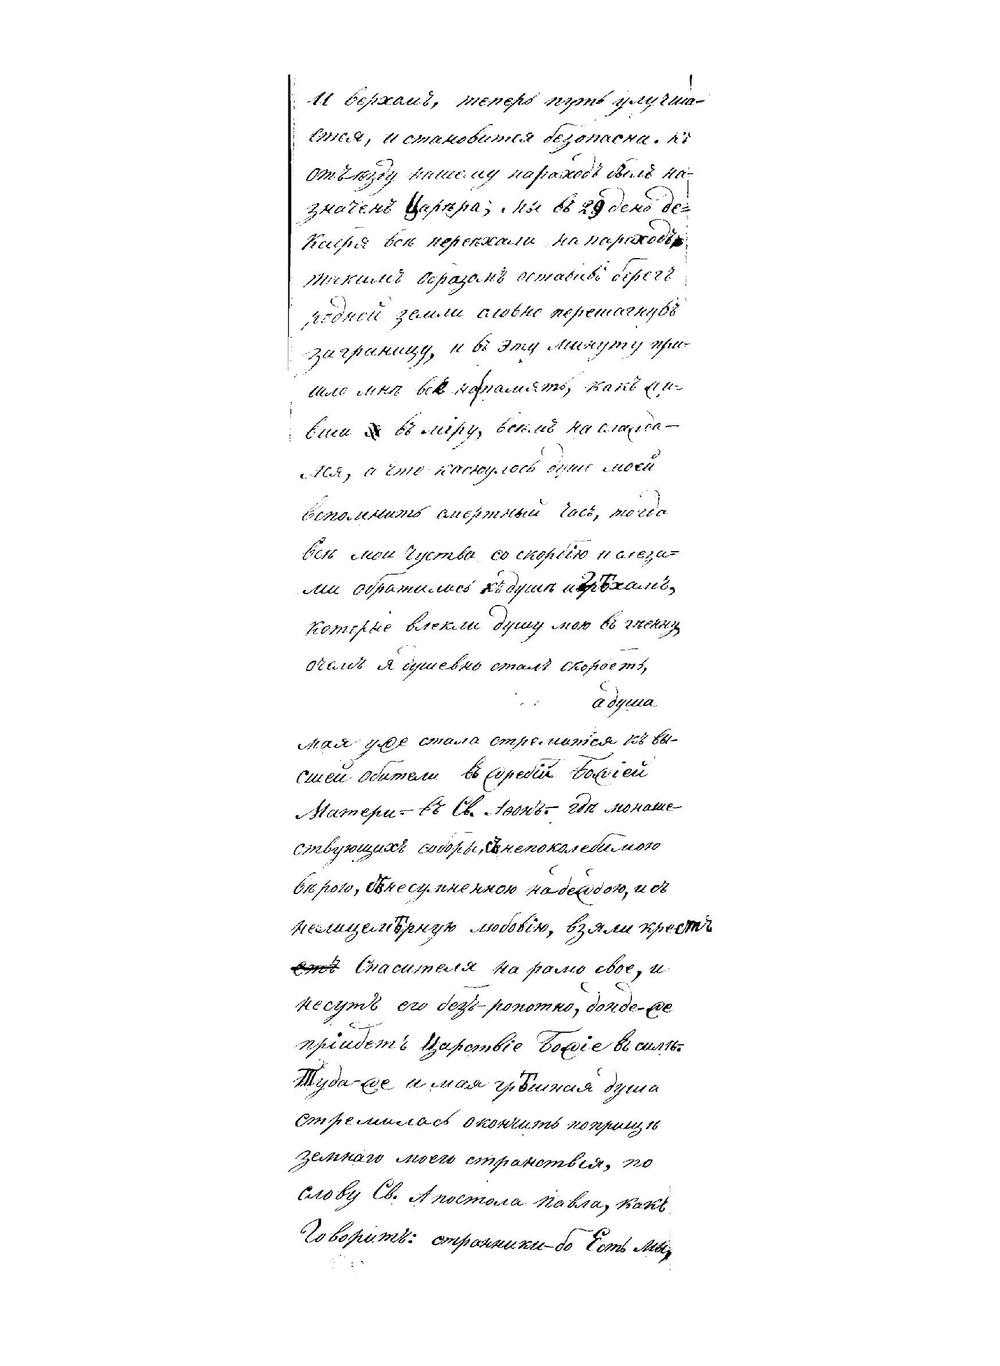 И верхомъ, теперь путь улучша-
ется, и становится безопасна. къ
отъѣзду нашему пароходъ былъ на-
значенъ Царьра; мы въ 29 день де=
кабря всѣ переѣхали на пароходъ,
такимъ образомъ оставивъ берегъ
родной земли словно перешагнувъ
заграницу, и въ эту минуту при-
шло мнѣ всѣ на память, какъ жи-
вши въ міру, всѣмъ наслажда-
лся, а что каснулось душе моей
вспомнить смертный часъ, тогда
всѣ мои чуства со скорбію и слеза=
ми обратилось къ душѣ и грѣхамъ,
которые влекли душу мою въ геенну
очемъ я душевно сталъ скорбеть,
а душа
мая уже стала стремится къ вы-
сшей обители въ жребій Божіей
Матери- въ Св. Аѳонъ- гдѣ монаше-
ствующихъ соборы, съ непоколебимою
вѣрою, съ несумненною надеждою, и съ
нелицемѣрную любовію, взяли крестъ
стъ Спасителя на рамо свое, и
несутъ его безъ-ропотно, донде-же
пріидетъ Царствіе Божіе въ силѣ.
Туда-же и мая грѣшная душа
стремилась окончить поприще
земнаго моего странствія, по
слову Св. Апостола Павла, какъ
Говоритъ: странники-бо Есть мы,